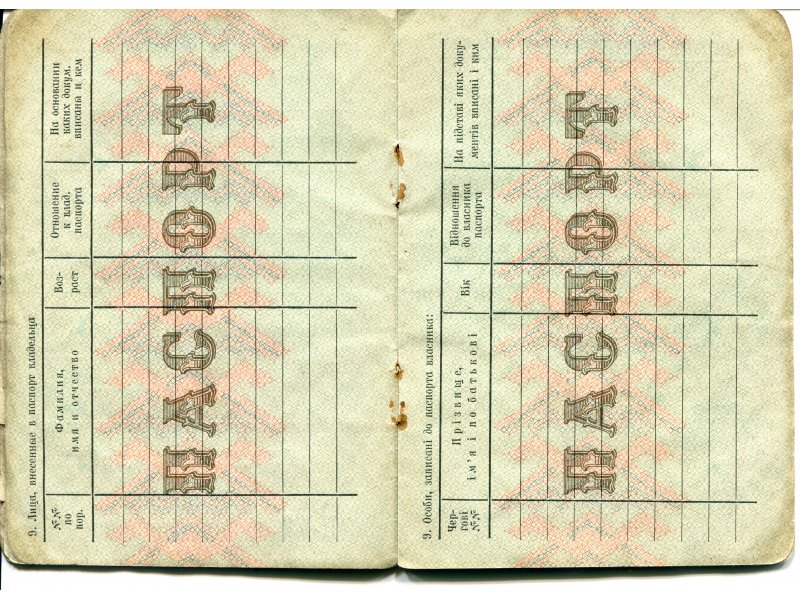 9. Лица, внесенные в паспорт владельца
№№
по
пор.
Фамилия,
имя и отчество
Воз-
раст
Отношение
к влад.
паспорта
На основании
каких докум.
вписана и кем
ПАСПОРТ
9. Особи, записані до паспорта власника:
Чер-
гові
№№
Прізвище,
ім'я і по батькові
Вік
Відношення
до власника
паспорта
На підставі яких доку-
ментів вписані і ким
ПАСПОРТ